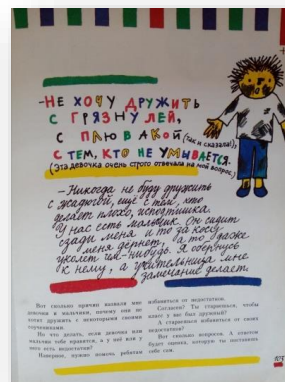 -НЕ ХОЧУ ДРУЖИТЬ
С ГРЯЗНУЛЕЙ,
С ПЛЮВАКОЙ (так и сказала!),
С ТЕМ, КТО НЕ УМЫВАЕТСЯ.
(Эта девочка очень строго отвечала на мой вопрос.)
- Никогда не буду дружить
с жадюгой, ещё с тем, кто
делает плохо, исподтишка.
У нас есть мальчик. Он сидит
сзади меня и то за косу
меня дёрнет, а то даже
уколет чем-нибудь. Я обернусь
к нему, а учительница мне
замечание делает.
Вот сколько причин назвали мне
девочки и мальчики, почему они не
хотят дружить с некоторыми своими
соучениками.
Но что делать, если девочка или
мальчик тебе нравятся, а у неё или у
него есть недостатки?
Наверное, нужно помочь ребятам
избавиться от недостатков.
Согласен? Ты стараешься, чтобы
класс у вас был дружный?
А стараешься избавиться от своих
недостатков?
Вот сколько вопросов. А ответом
будет оценка, которую ты поставишь
себе сам.
103